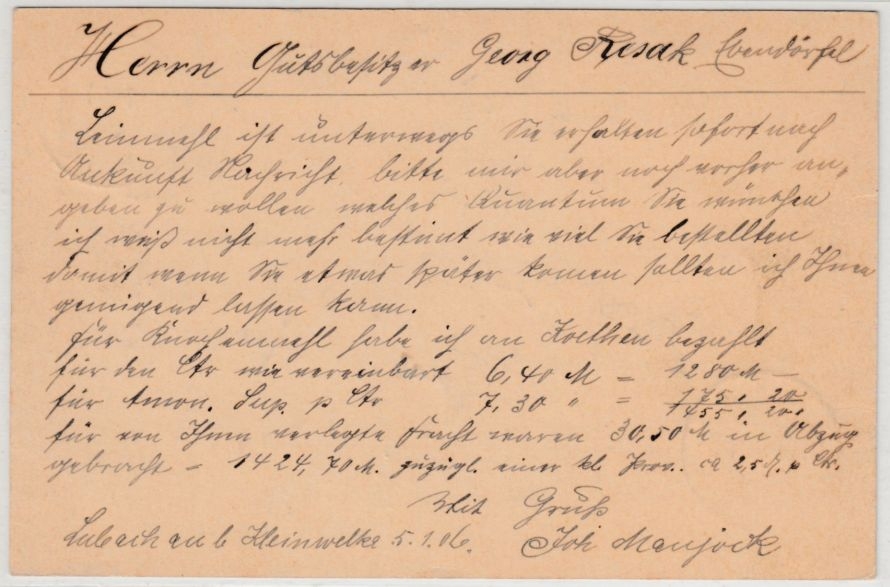 Herrn Gutsbesitzer Georg Resak Ebendörfel
Leimmehl ist unterwegs Sie erhalten sofort nach
Ankunft Nachricht, bitte mir aber noch vorher an-
geben zu wollen welches Quantum Sie wünschen
ich weiß nicht mehr bestimt wie viel Sie bestellten
damit wenn Sie etwas später komen sollten ich Ihnen
genügend lassen kann.
für Knochenmehl habe ich an Koethen bezahlt
für den Ctr wie vereinbart 6,40 M = 1280 M —
für Amon. Sup. p Ctr 7,30 " = 175. 20
1455. 20.
für von Ihnen verlegte Fracht waren 30,50 M in Abzug
gebracht = 1424,70 M. zuzügl. einer kl. Prov. ca 2,5 ₰. p Ctr.
Mit Gruß
Kleinwelka 5.1.06. Joh